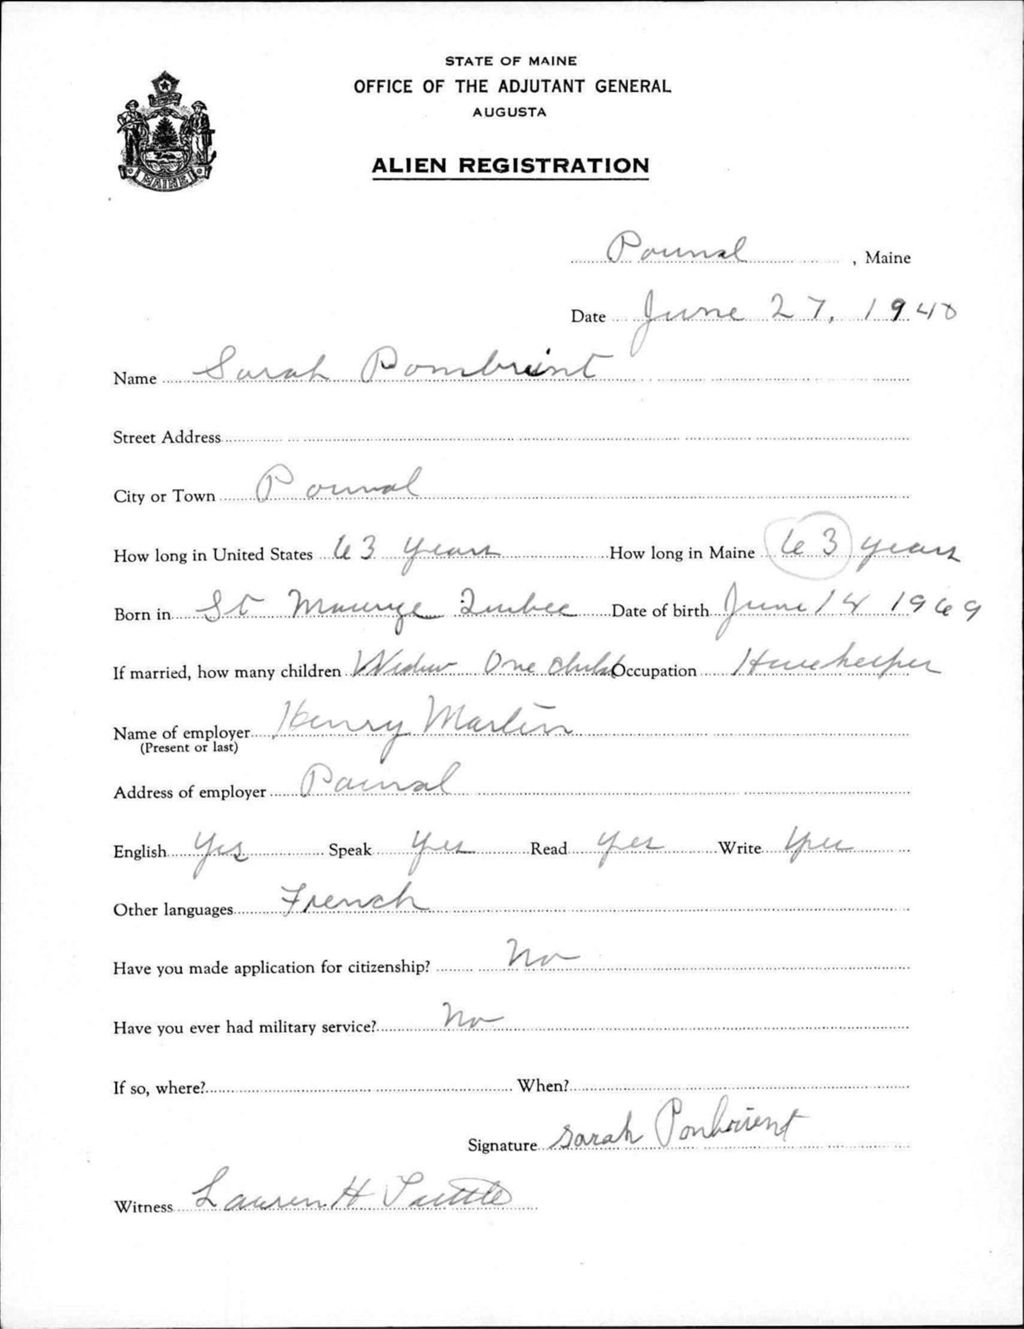 STATE OF MAINE
OFFICE OF THE ADJUTANT GENERAL
AUGUSTA
ALIEN REGISTRATION
MAINE
Pownal, Maine
Date June 27, 1940
Name Sarah Pombrint
Street Address
City or Town Pownal
How long in United States 63 years How long in Maine 63 years
Born in St Quebec Date of birth June 14 1969
If married, how many children Widow One child Occupation Housekeeper
Name of employer Henry Martin
(Present or last)
Address of employer Pownal
English Yes Speak Yes Read Yes Write Yes
Other languages French
Have you made application for citizenship? No
Have you ever had military service? No
If so, where? When?
Signature Sarah
Witness Lauren H Tuttle